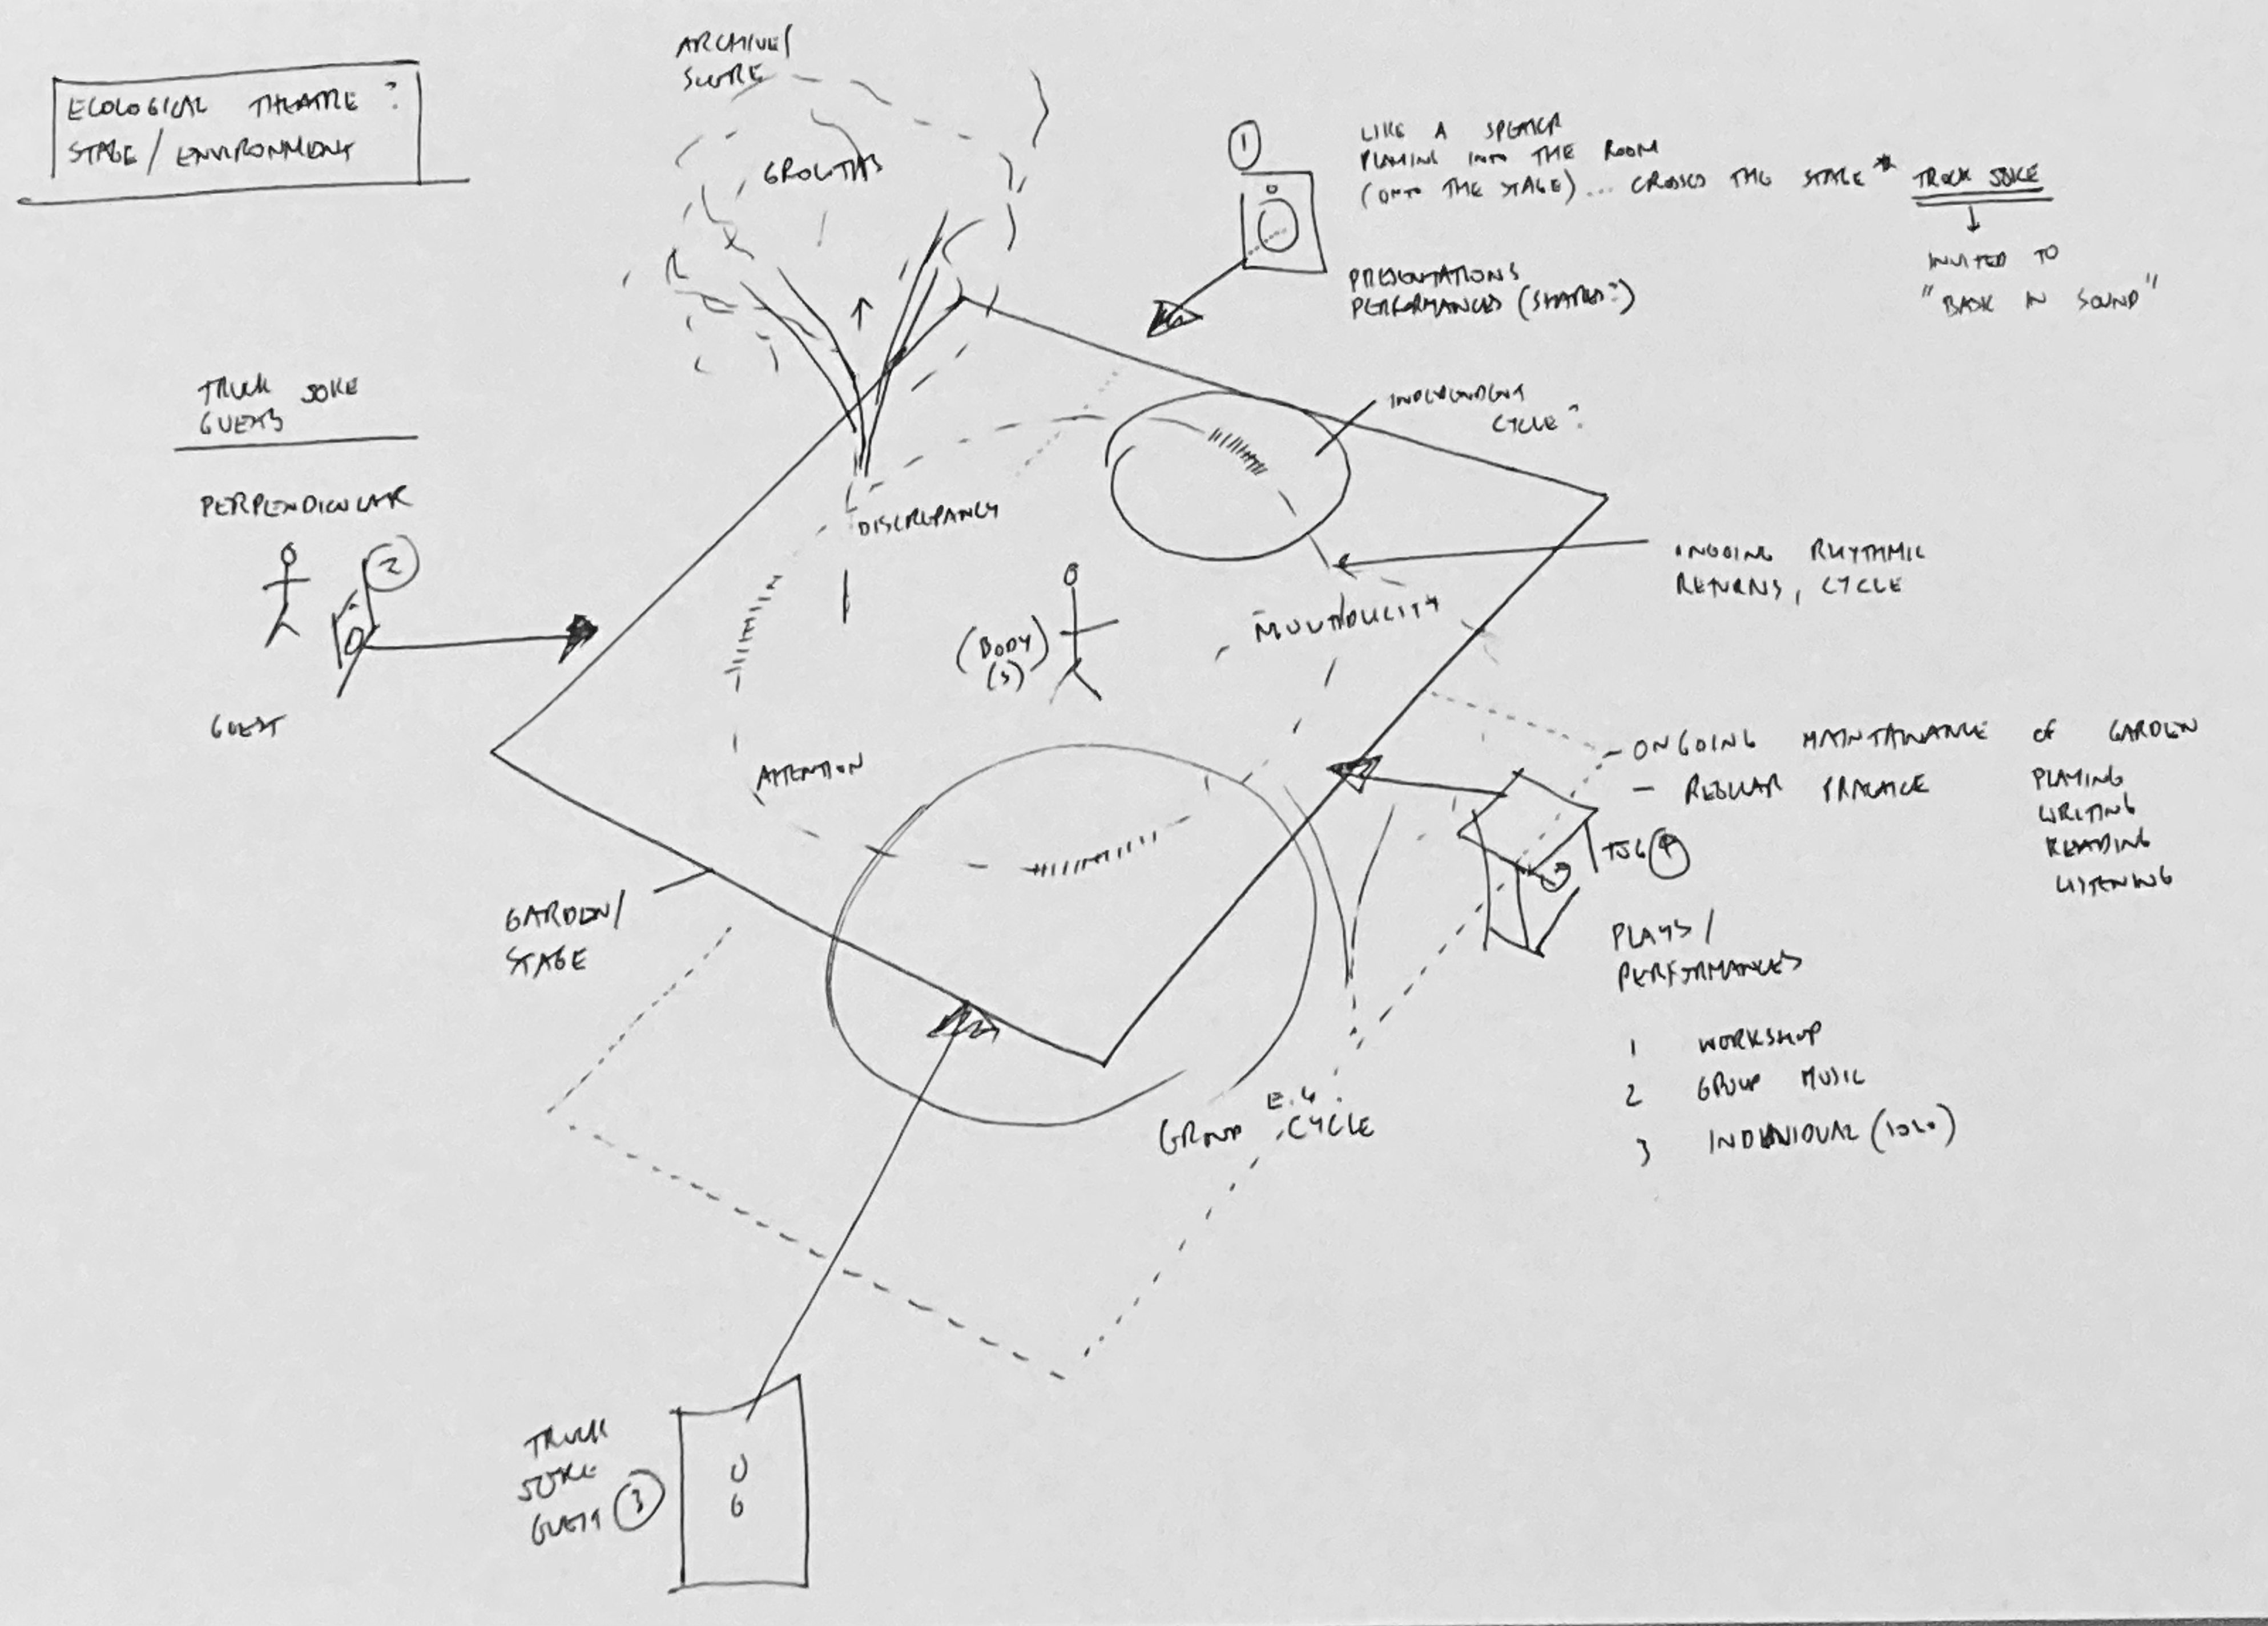 ECOLOGICAL THEATRE :
STAGE / ENVIRONMENT
ARCHIVE /
SCORE
GROWTHS
1
LIKE A SPEAKER
PLAYING INTO THE ROOM
(ONTO THE STAGE) ... CROSSES THE STAGE * TRUCK JOKE
INVITED TO
"BASK IN SOUND"
PRESENTATIONS
PERFORMANCES (SHARED?)
INDEPENDENT
CYCLE ?
TRUCK JOKE
GUESTS
PERPENDICULAR
2
GUEST
DISCREPANCY
(BODY
(S)
MULTIPLICITY
ONGOING RHYTHMIC
RETURNS, CYCLE
ATTENTION
GARDEN /
STAGE
- ONGOING MAINTAINANCE OF GARDEN
- REGULAR PRACTICE PLAYING
WRITING
READING
LISTENING
TJG 4
PLAYS /
PERFORMANCES
1 WORKSHOP
2 GROUP MUSIC
3 INDIVIDUAL (SOLO)
E.G.
GROUP CYCLE
TRUCK
JOKE
GUEST 3